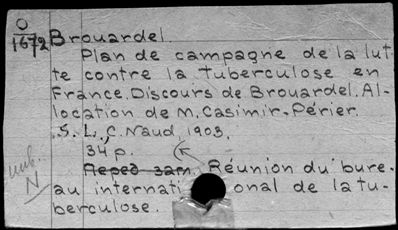 O
1672 Brouardel.
Plan de campagne de la lut-
te contre la tuberculose en
France. Discours de Brouardel. Al-
location de M. Casimir-Périer.
S. L., C. Naud, 1903.
34 p.
Réunion du bure-
au international de la tu-
berculose.
N